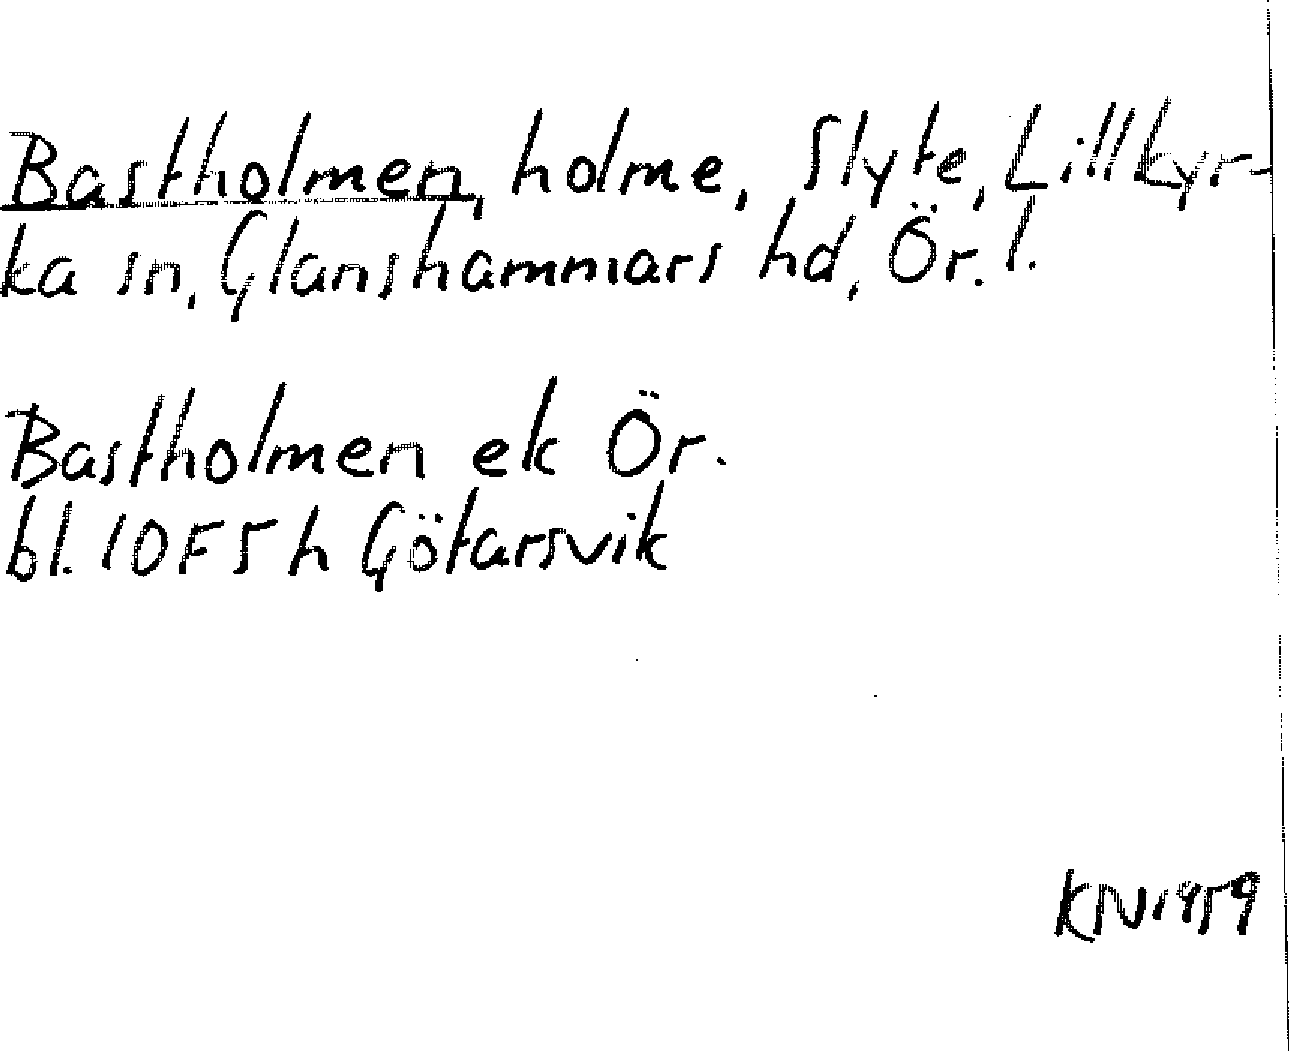 Bastholmen, holme, Slyte, Lillkyr-
ka sn, Glanshammars hd, Ör. l.
Bastholmen ek Ör.
bl. 10F5h Götarsvik
KN1959